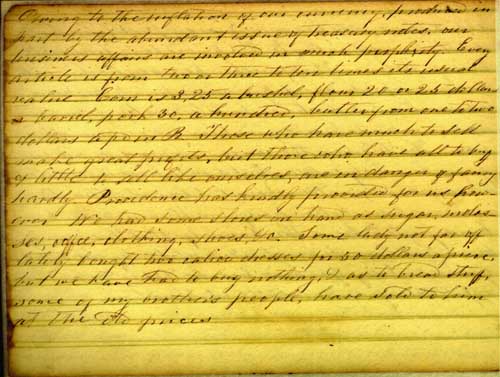 Owing to the inflation of our currency, produced in
part by the abundant issue of treasury notes, our
business affairs are involved in much perplexity. Every
article is from two or three to ten times its usual
value. Corn is 3,25 a bushel, flour 20 or 25 dollars
a barrel, pork 30, a hundred, butter from one to two
dollars a pound. Those who have much to sell
make great profits, but those who have all to buy
& little to sell like ourselves, are in danger of faring
hardly. Providence has kindly provided for us how-
ever. We had some stores on hand as sugar, molas
ses, coffee, clothing, shoes, &c. Some lady not far off
lately bought two calico dresses for 50 dollars apiece,
but we have had to buy nothing, & as to bread stuff,
some of my brother's people, have sold to him
at the old prices